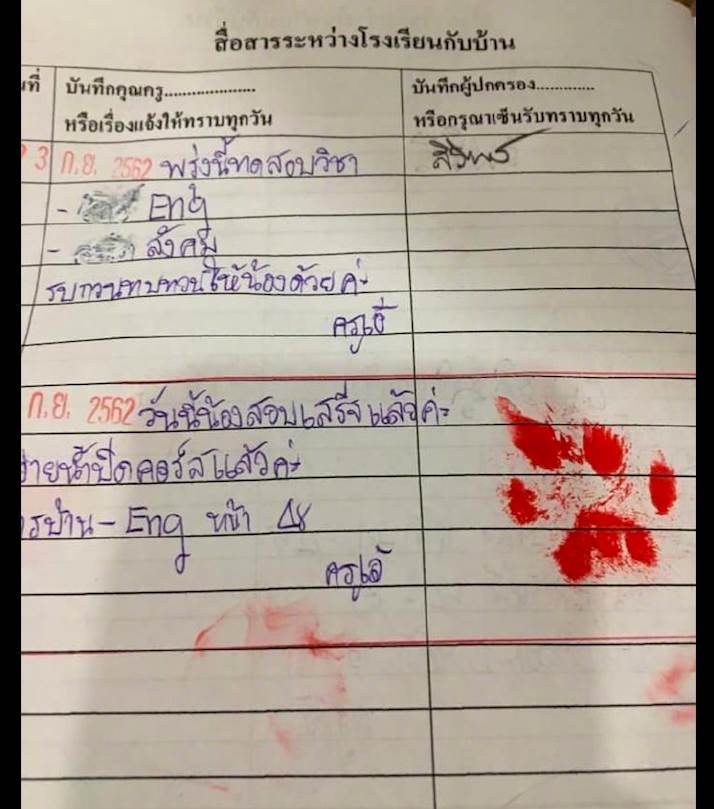 สื่อสารระหว่างโรงเรียนกับบ้าน
นที่
บันทึกคุณครู....................
หรือเรื่องแจ้งให้ทราบทุกวัน
บันทึกผู้ปกครอง.............
หรือกรุณาเซ็นรับทราบทุกวัน
3 ก.ย. 2562 พรุ่งนี้ทดสอบวิชา
- Eng
- สังคม
รบกวนทบทวนให้น้องด้วยค่ะ
ก.ย. 2562 วันนี้น้องสอบเสร็จแล้วค่ะ
ว่ายน้ำปิดคอร์สแล้วค่ะ
รบ้าน - Eng หน้า